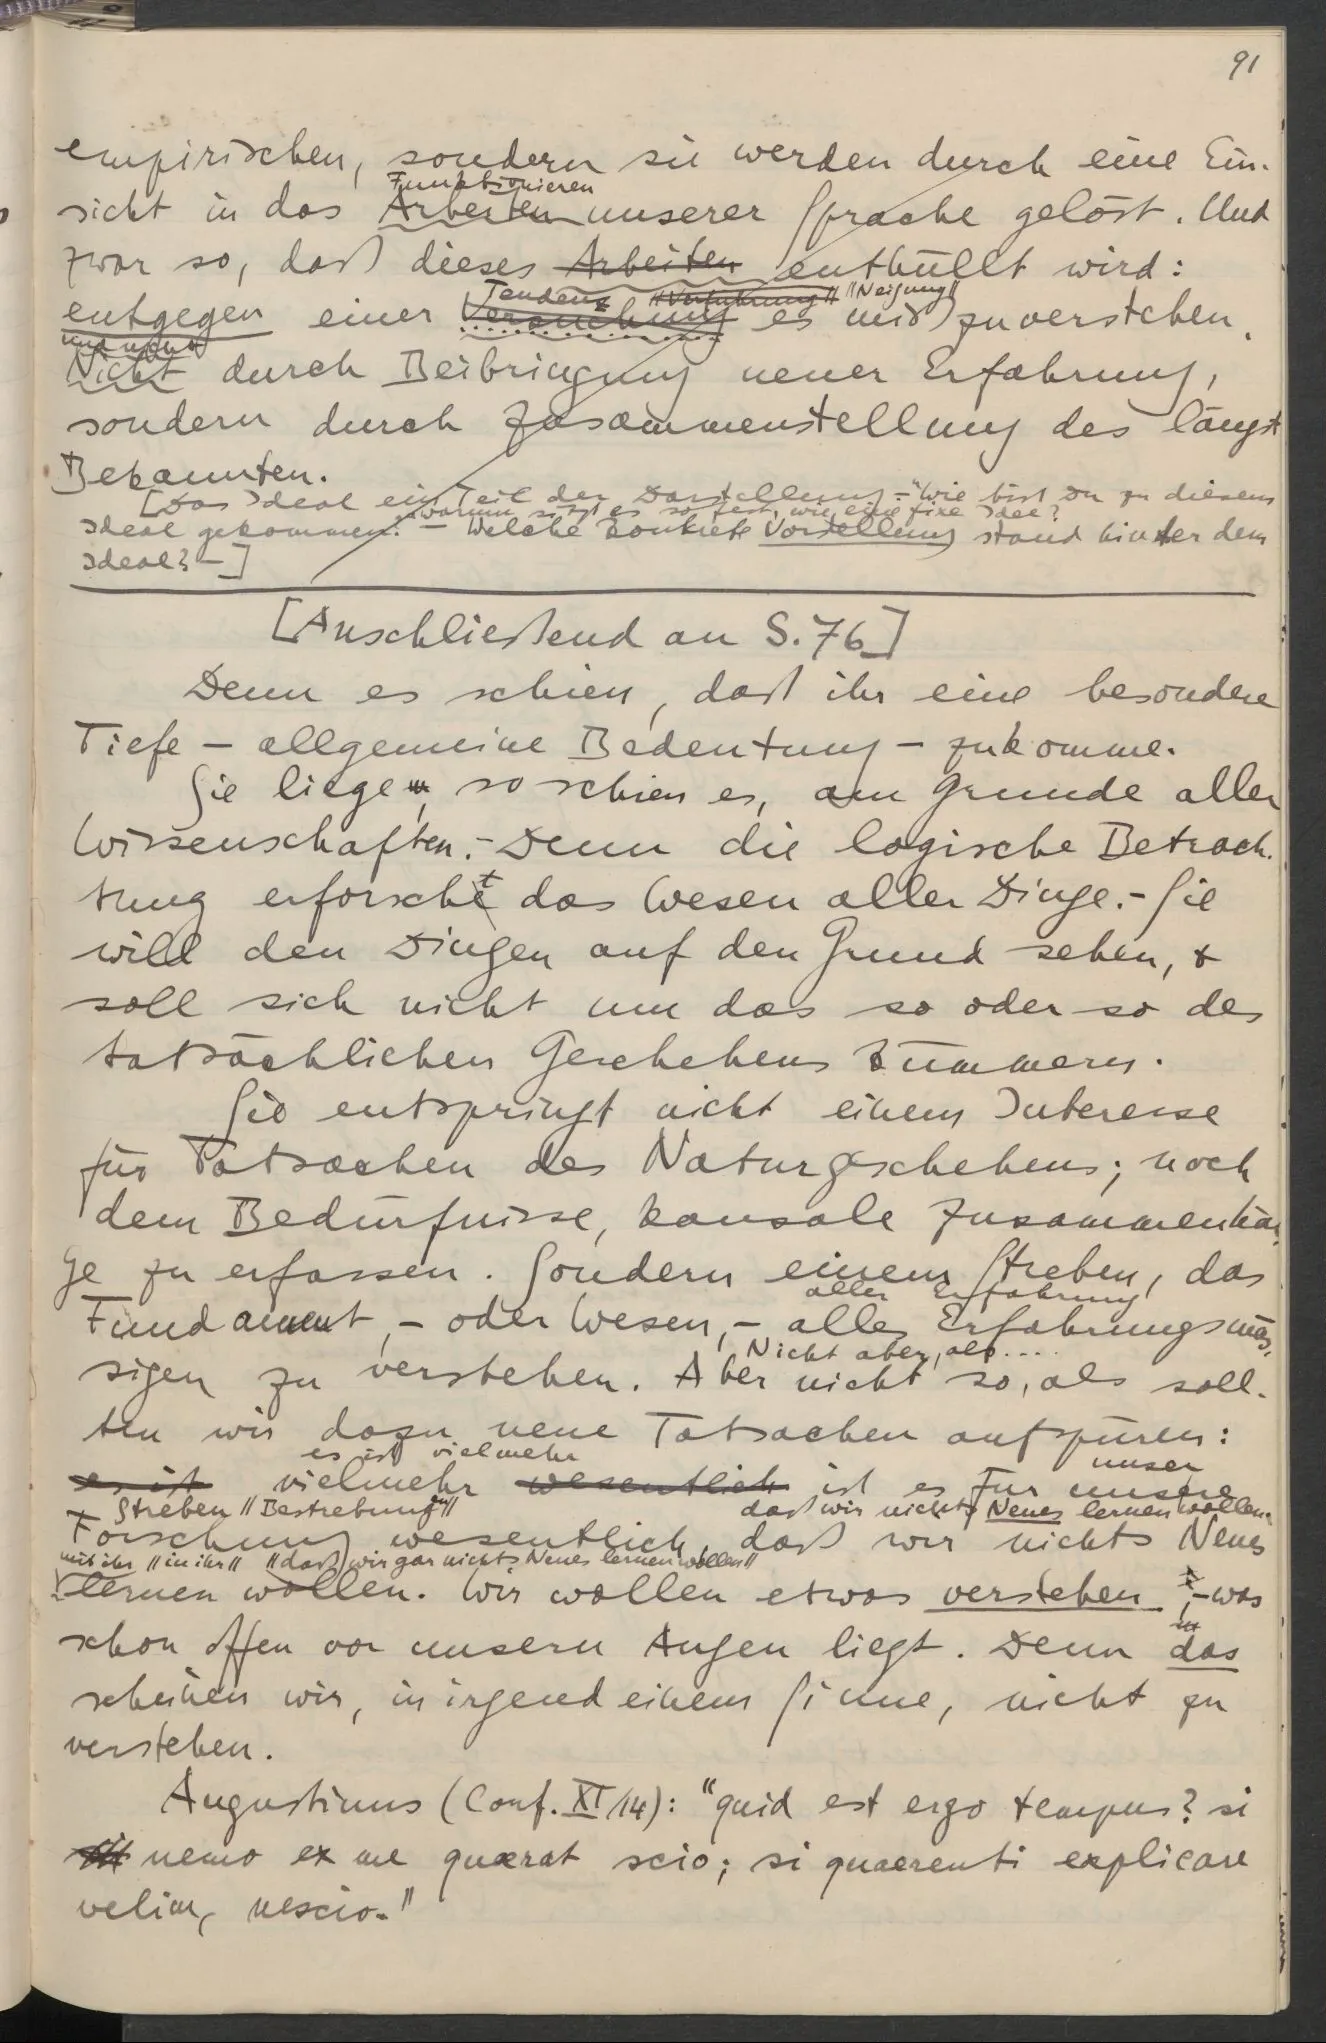 91
empirischen, sondern sie werden durch eine Ein-
Funktionieren
sicht in das Arbeiten unserer Sprache gelöst. Und
zwar so, daß dieses Arbeiten enthüllt wird:
Tendenz "Verführung" "Neigung"
entgegen einer Versuchung es mißzuverstehen.
Nicht durch Beibringung neuer Erfahrung,
sondern durch Zusammenstellung des längst
Bekannten.
[Das Ideal ein Teil der Darstellung – "Wie bist Du zu diesem
"warum sitzt es so fest, wie eine fixe Idee?
Ideal gekommen." – Welche konkrete Vorstellung stand hinter dem
Ideal? –]
[Anschließend an S. 76]
Denn es schien, daß ihr eine besondere
Tiefe – allgemeine Bedeutung – zukomme.
Sie liege, so schien es, am Grunde aller
Wissenschaften. – Denn die logische Betrach-
tung erforscht das Wesen aller Dinge. – Sie
will den Dingen auf den Grund sehen, &
soll sich nicht um das so oder so des
tatsächlichen Geschehens kümmern.
Sie entspringt nicht einem Interesse
für Tatsachen des Naturgeschehens; noch
dem Bedürfnisse, kausale Zusammenhän-
ge zu erfassen. Sondern einem Streben, das
aller Erfahrung
Fundament, – oder Wesen, – alles Erfahrungsmäs-
Nicht aber, als ....
sigen zu verstehen. Aber nicht so, als soll-
ten wir dazu neue Tatsachen aufspüren:
es ist vielmehr unser
es ist vielmehr wesentlich ist es für unsere
Streben "Bestrebung" daß wir nichts Neues lernen wollen.
Forschung wesentlich, daß wir nichts Neues
mit ihr "in ihr" "daß wir gar nichts Neues lernen wollen"
lernen wollen. Wir wollen etwas verstehen, – was
schon offen vor unsern Augen liegt. Denn das
scheinen wir, in irgend einem Sinne, nicht zu
verstehen.
Augustinus (Conf. XI/14): "quid est ergo tempus? si
nemo ex me quaerat scio; si quaerenti explicare
velim, nescio."